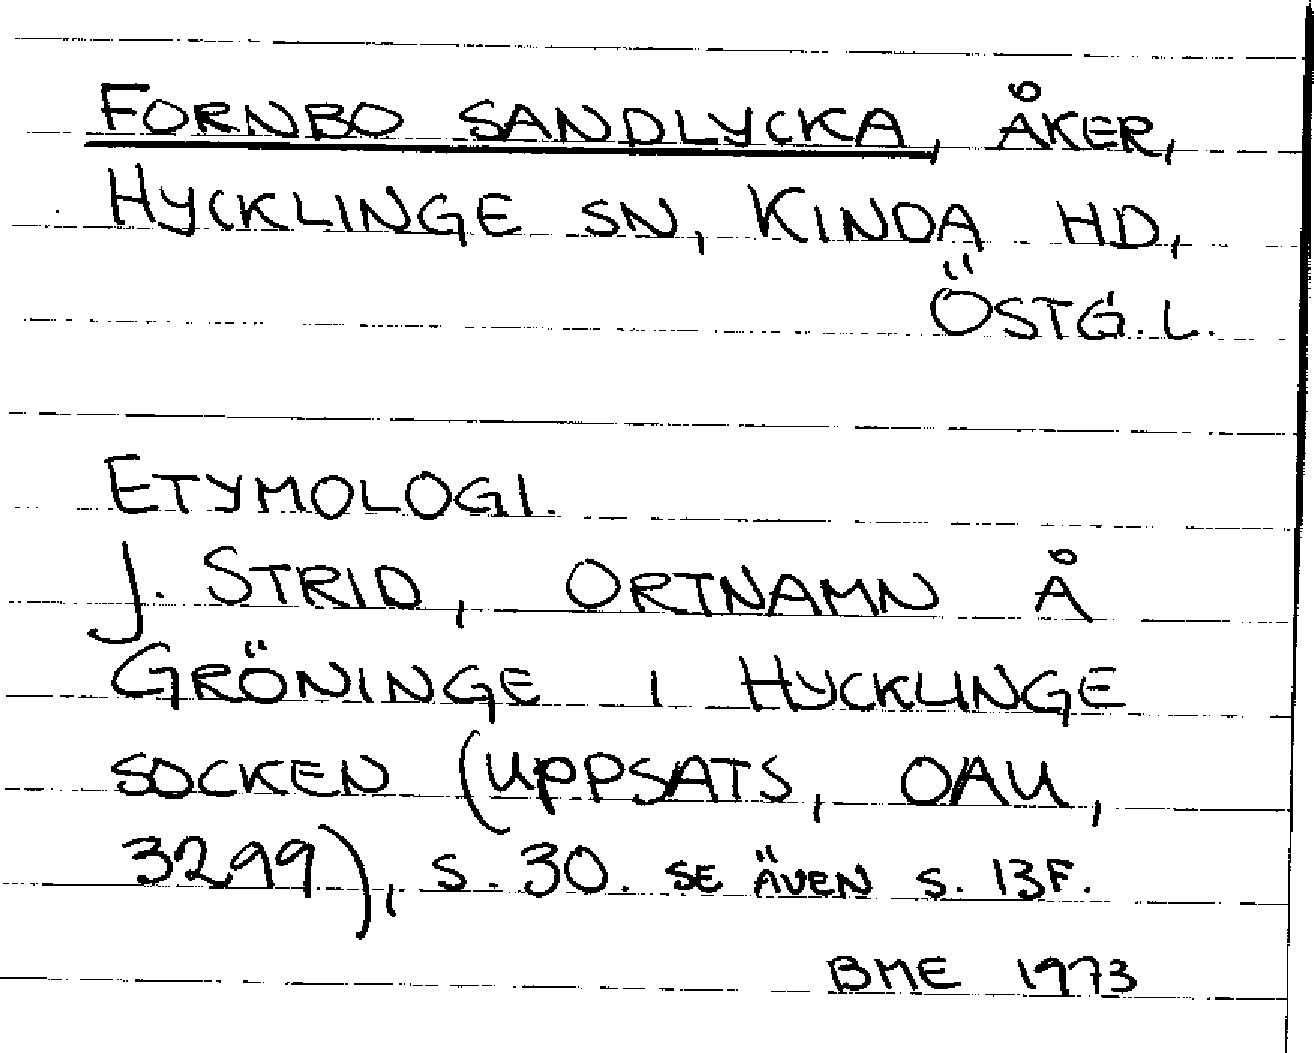 FORNBO SANDLYCKA, ÅKER,
HYCKLINGE SN, KINDA HD,
ÖSTG. L.
ETYMOLOGI.
J. STRID, ORTNAMN Å
GRÖNINGE I HYCKLINGE
SOCKEN (UPPSATS, OAU,
3299), S. 30. SE ÄVEN S. 13F.
BME 1973